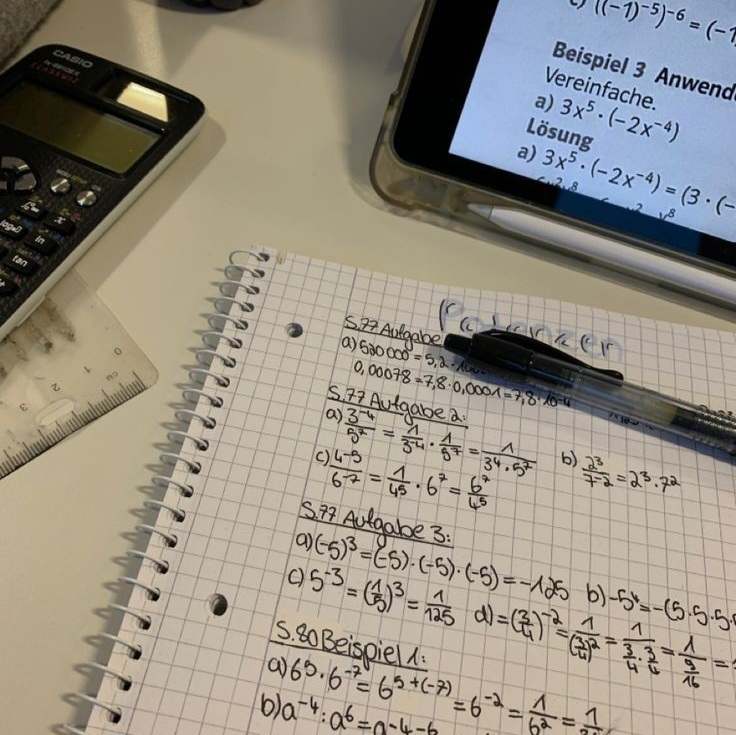 CASIO
fx-87DEX
CLASSWIZ
c) ((−1)⁻⁵)⁻⁶ = (−1)
Beispiel 3 Anwend
Vereinfache.
a) 3x⁵ · (−2x⁻⁴)
Lösung
a) 3x⁵ · (−2x⁻⁴) = (3 · (−
ln
tan
0
1
2
3
cm
Potenzen
S.77 Aufgabe
a) 520 000 = 5,2 ·
0,00078 = 7,8 · 0,0001 = 7,8 · 10⁻⁴
S.77 Aufgabe 2:
a) 3⁻⁴/5⁷ = 1/3⁻⁴ · 1/5⁷ = 1/3⁴·5⁷ b) 2³/7⁻² = 2³ · 7²
c) 4⁻⁵/6⁻⁷ = 1/4⁵ · 6⁷ = 6⁷/4⁵
S.77 Aufgabe 3:
a) (−5)³ = (−5) · (−5) · (−5) = −125 b) −5⁴ = −(5·5·5·
c) 5⁻³ = (1/5)³ = 1/125 d) = (3/4)⁻² = 1/(3/4)² = 1/(3/4 · 3/4) = 1/(9/16) =
S.80 Beispiel 1:
a) 6⁵ · 6⁻⁷ = 6⁵⁺⁽⁻⁷⁾ = 6⁻² = 1/6² = 1/
b) a⁻⁴ : a⁶ = a⁻⁴⁻⁶